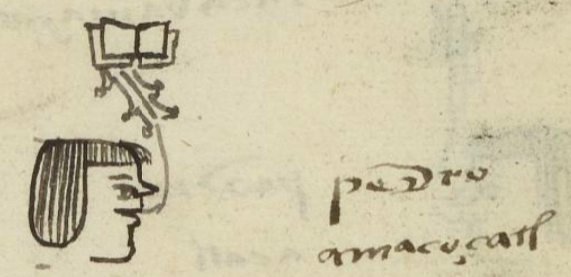 pedro
amacoçatl